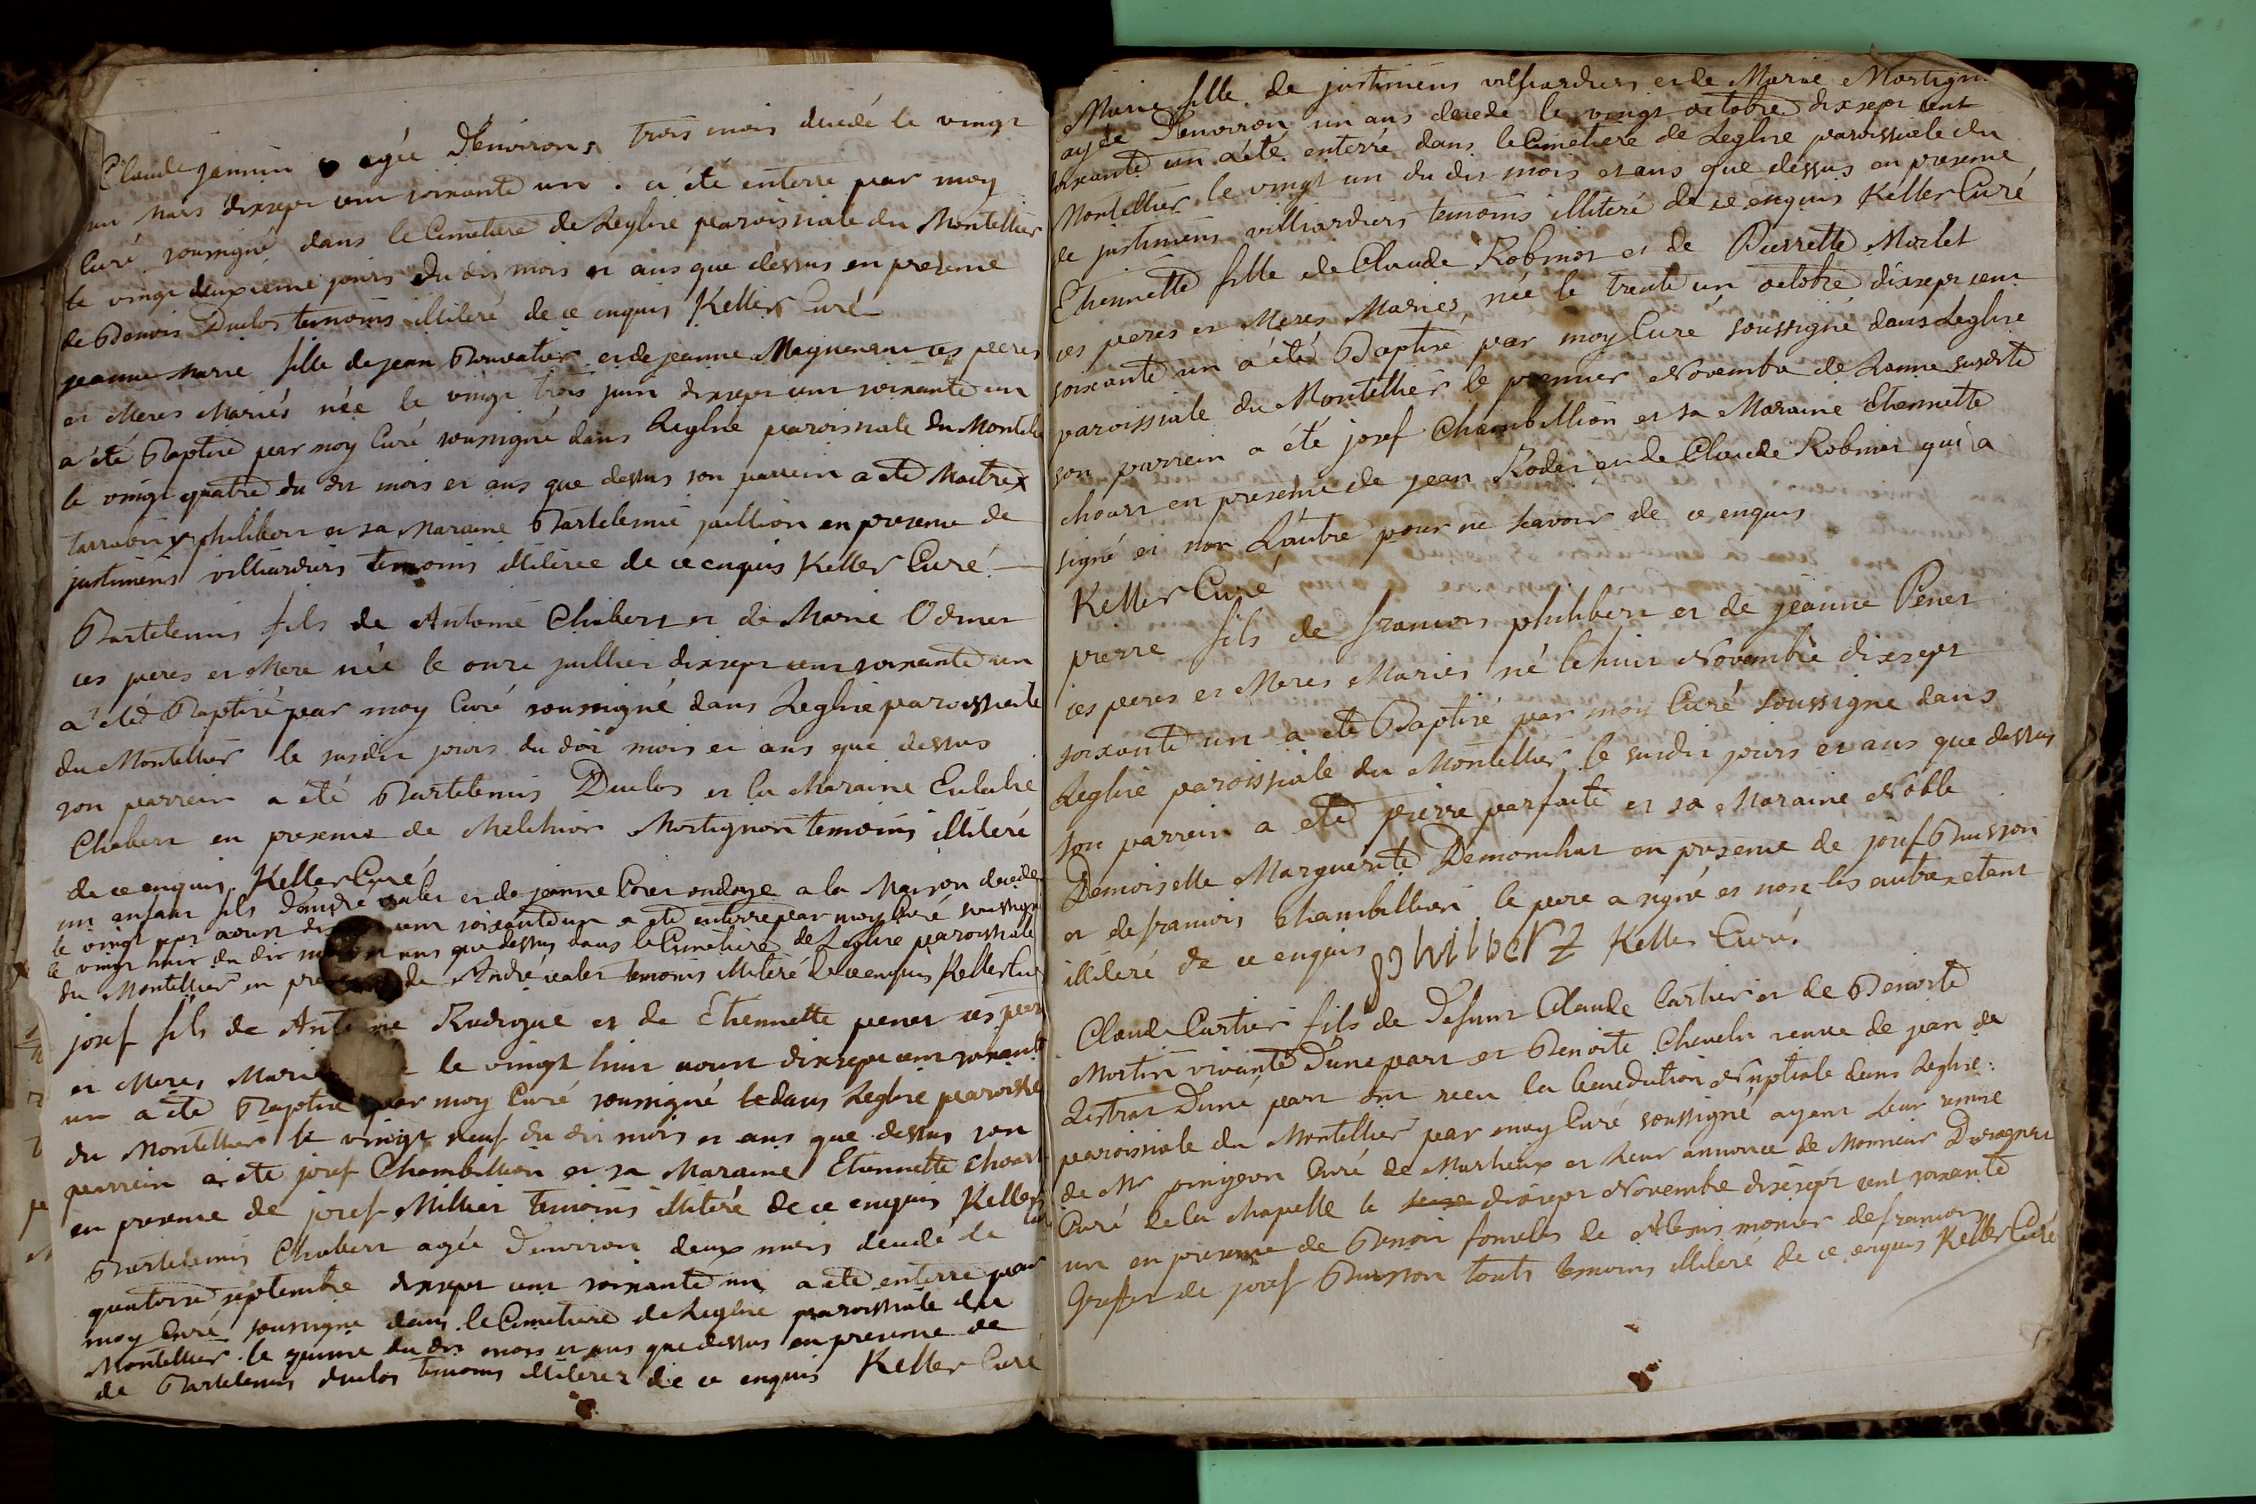 Claude jannin agée d'environs trois mois decedé le vingt
un Mars dixsept cent soixante un . a été enterre par moy
Curé soussigné dans le Cimetiere de Leglise paroissiale du Montellier
le vingt deuxieme jours du dis mois et ans que dessus en presence
de Benois Duclos temoins illiteré de ce enquis Keller Curé
jeanne marie fille de jean et de jeanne ces peres
et Meres Mariés née le vingt trois juin dixsept cent soixante un
a été Baptisé par moy Curé soussigné dans Leglise paroissiale du Montelli
le vingt quatre du dit mois et ans que dessus son parrein a été Maitre
philibert et sa Maraine Bartelemie juillion en presence de
justiniens villiardiers temoins illiteree de ce enquis Keller Curé
Bartelemis fils de Antoine Chabert et de Marie Odmer
ces peres et Mere née le onze juillier dixsept cent soixante un
a été Baptisé par moy Curé soussigné dans Leglise paroissiale
du Montellier le susdit jours du dit mois et ans que dessus
son parrein a été Bartelemis Duclos et la Maraine Eulalie
Chabert en presence de Melchior Mortignon temoins illiteré
de ce enquis Keller Curé
un enfant fils d'andré valer et de jeanne ondoyé a la Maison decedé
le vingt aoust cent soixante un a été enterre par moy Curé soussigné
le vingt huit du dit ans que dessus dans le Cimetiere de Leglise paroissiale
du Montellier en de André valer temoins illiteré de ce enquis Keller Cur
josef fils de Antoine Rudigue et de Etiennette pener ces peres
et Meres Mari le vingt huit aoust dixsept cent soixante
un a été Baptisé par moy Curé soussigné dans Leglise paroissi
du Montellier le vingt neuf du dit mois et ans que dessus son
parrein a été josef Chambillion et sa Maraine Etiennette Choart
en presence de josef Millier temoins illiteré de ce enquis Keller
Curé
Bartelemis Chabert agée d'environ deux mois décedé le
quatorze septembre dixsept cent soixante un a été enterre par
moy Curé soussigné dans le Cimetiere de Leglise paroissiale du
Montellier le quinze du dit mois et ans que dessus en presence de
de Bartelemis duclos temoins illiterez de ce enquis Keller Curé
Marie fille de justiniens villiardiers et de Marie Mortign
agée d'environ un ans decede le vingt octobre dixsept cent
soixante un a été enterré dans le Cimetiere de Leglise paroissiale du
Montellier le vingt un du dit mois et ans que dessus en presence
de justiniens villiardiers temoins illiteré de ce enquis Keller Curé
Etiennette fille de Claude Robinet et de Pierrette Morlet
ces peres et Meres Maries, née le trente un octobre dixsept cent
soixante un a été Baptisé par moy Curé soussigné dans Leglise
paroissiale du Montellier le premier Novembre de Lanne susdite
son parrein a été josef Chambillion et sa Maraine Etiennette
choart en presence de jean Rodet et de Claude Robinet qui a
signé et non Lautre pour ne scavoir de ce enquis
Keller Curé
pierre fils de francois philibert et de jeanne Pener
ces peres et Meres Mariés né le huit Novembre dixsept
soixante un a été Baptisé par moy Curé soussigné dans
Leglise paroissiale du Montellier le susdit jours et ans que dessus
son parrein a été pierre parfaite et sa Maraine Noble
Demoiselle Marguerite Demonchat en presence de josef Buisson
et de francois chambillion le pere a signé et non les autres etent
illiteré de ce enquis philibert Keller Curé
Claude Cartier fils de Defunt Claude Cartier et de Benoite
Mortin vivante D'une part et Benoite Chevelu veuve de jean de
Lestrat D'une part ont receu la benediction Nuptiale dans Leglise
paroissiale du Montellier par moy Curé soussigné ayant leur remise
de Mr pinigeon Curé de Marlieux et leur annonce de Monsieur
Curé de la chapelle le dixsept Novembre dixsept cent soixante
un en presence de Benoit de Alexis monier de francois
de josef Buisson touts temoins illiteré de ce enquis Keller Curé